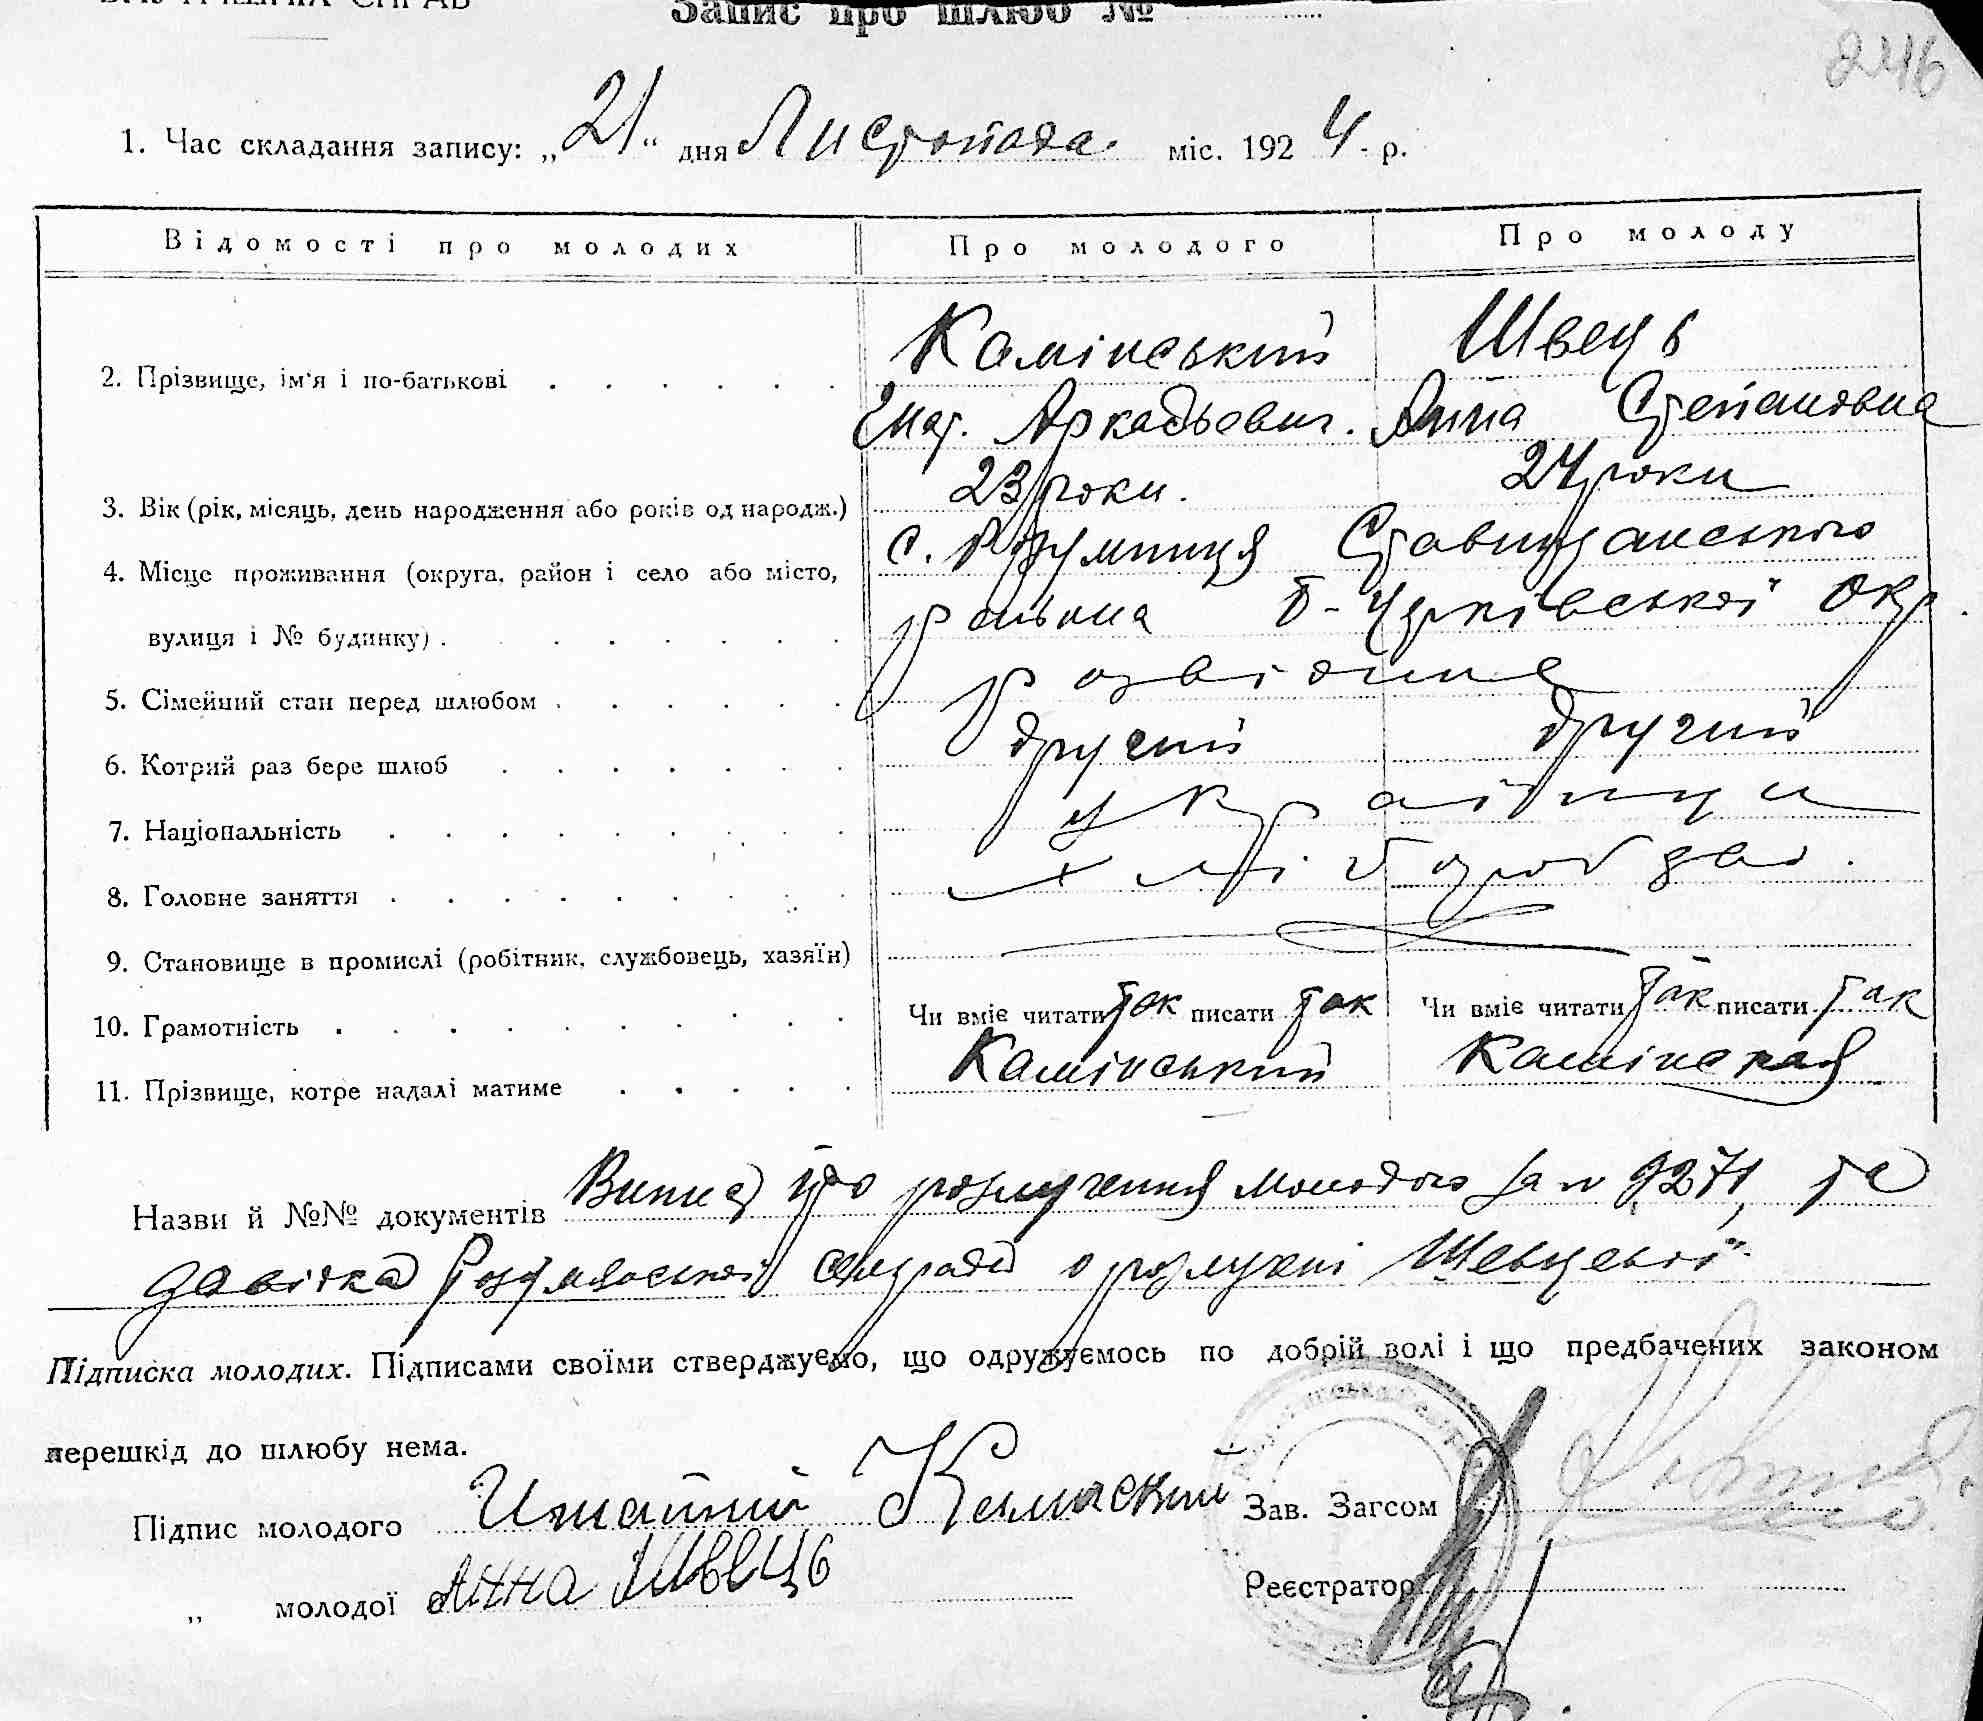 Запис про шлюб №
246
1. Час складання запису: „21“ дня Листопада міс. 1924 р.
Відомості про молодих Про молодого Про молоду
2. Прізвище, ім'я і по-батькові Камінський Швець
Гнат. Аркадьевич. Анна Степановна
3. Вік (рік, місяць, день народження або років од народж.) 23 роки. 24 роки
4. Місце проживання (округа, район і село або місто, с. Розумниця Ставищанського
вулиця і № будинку) района Б-Церківської Окр.
5. Сімейний стан перед шлюбом розвідние
6. Котрий раз бере шлюб другий другий
7. Національність українци
8. Головне заняття хліборобство.
9. Становище в промислі (робітник, службовець, хазяїн)
10. Грамотність Чи вміє читати так писати так Чи вміє читати так писати так
11. Прізвище, котре надалі матиме Камінський Камінская
Назви й №№ документів Випис про розлучення молодого за № 9271, та
довідка Розумницької сільради о розлучені Шевцевої
Підписка молодих. Підписами своїми стверджуємо, що одружуємось по добрій волі і що предбачених законом
перешкід до шлюбу нема.
Підпис молодого Игнатий Каминский Зав. Загсом
„ молодої Анна Швець Реєстратор